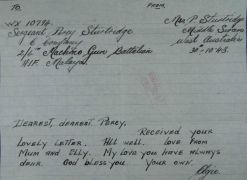 TO
FROM,
WX 10794.
Mrs P. Sturtridge
Sergeant Percy Sturtridge
Middle Swan
C Company
West Australia
2/4th Machine Gun Battalion
30 10 43.
AIF. Malaya.
DEAREST, DEAREST PERCY,
RECEIVED YOUR
LOVELY LETTER. ALL WELL. LOVE FROM
MUM AND ELLY. MY LOVE YOU HAVE ALWAYS
DEAR. GOD BLESS YOU. YOUR OWN.